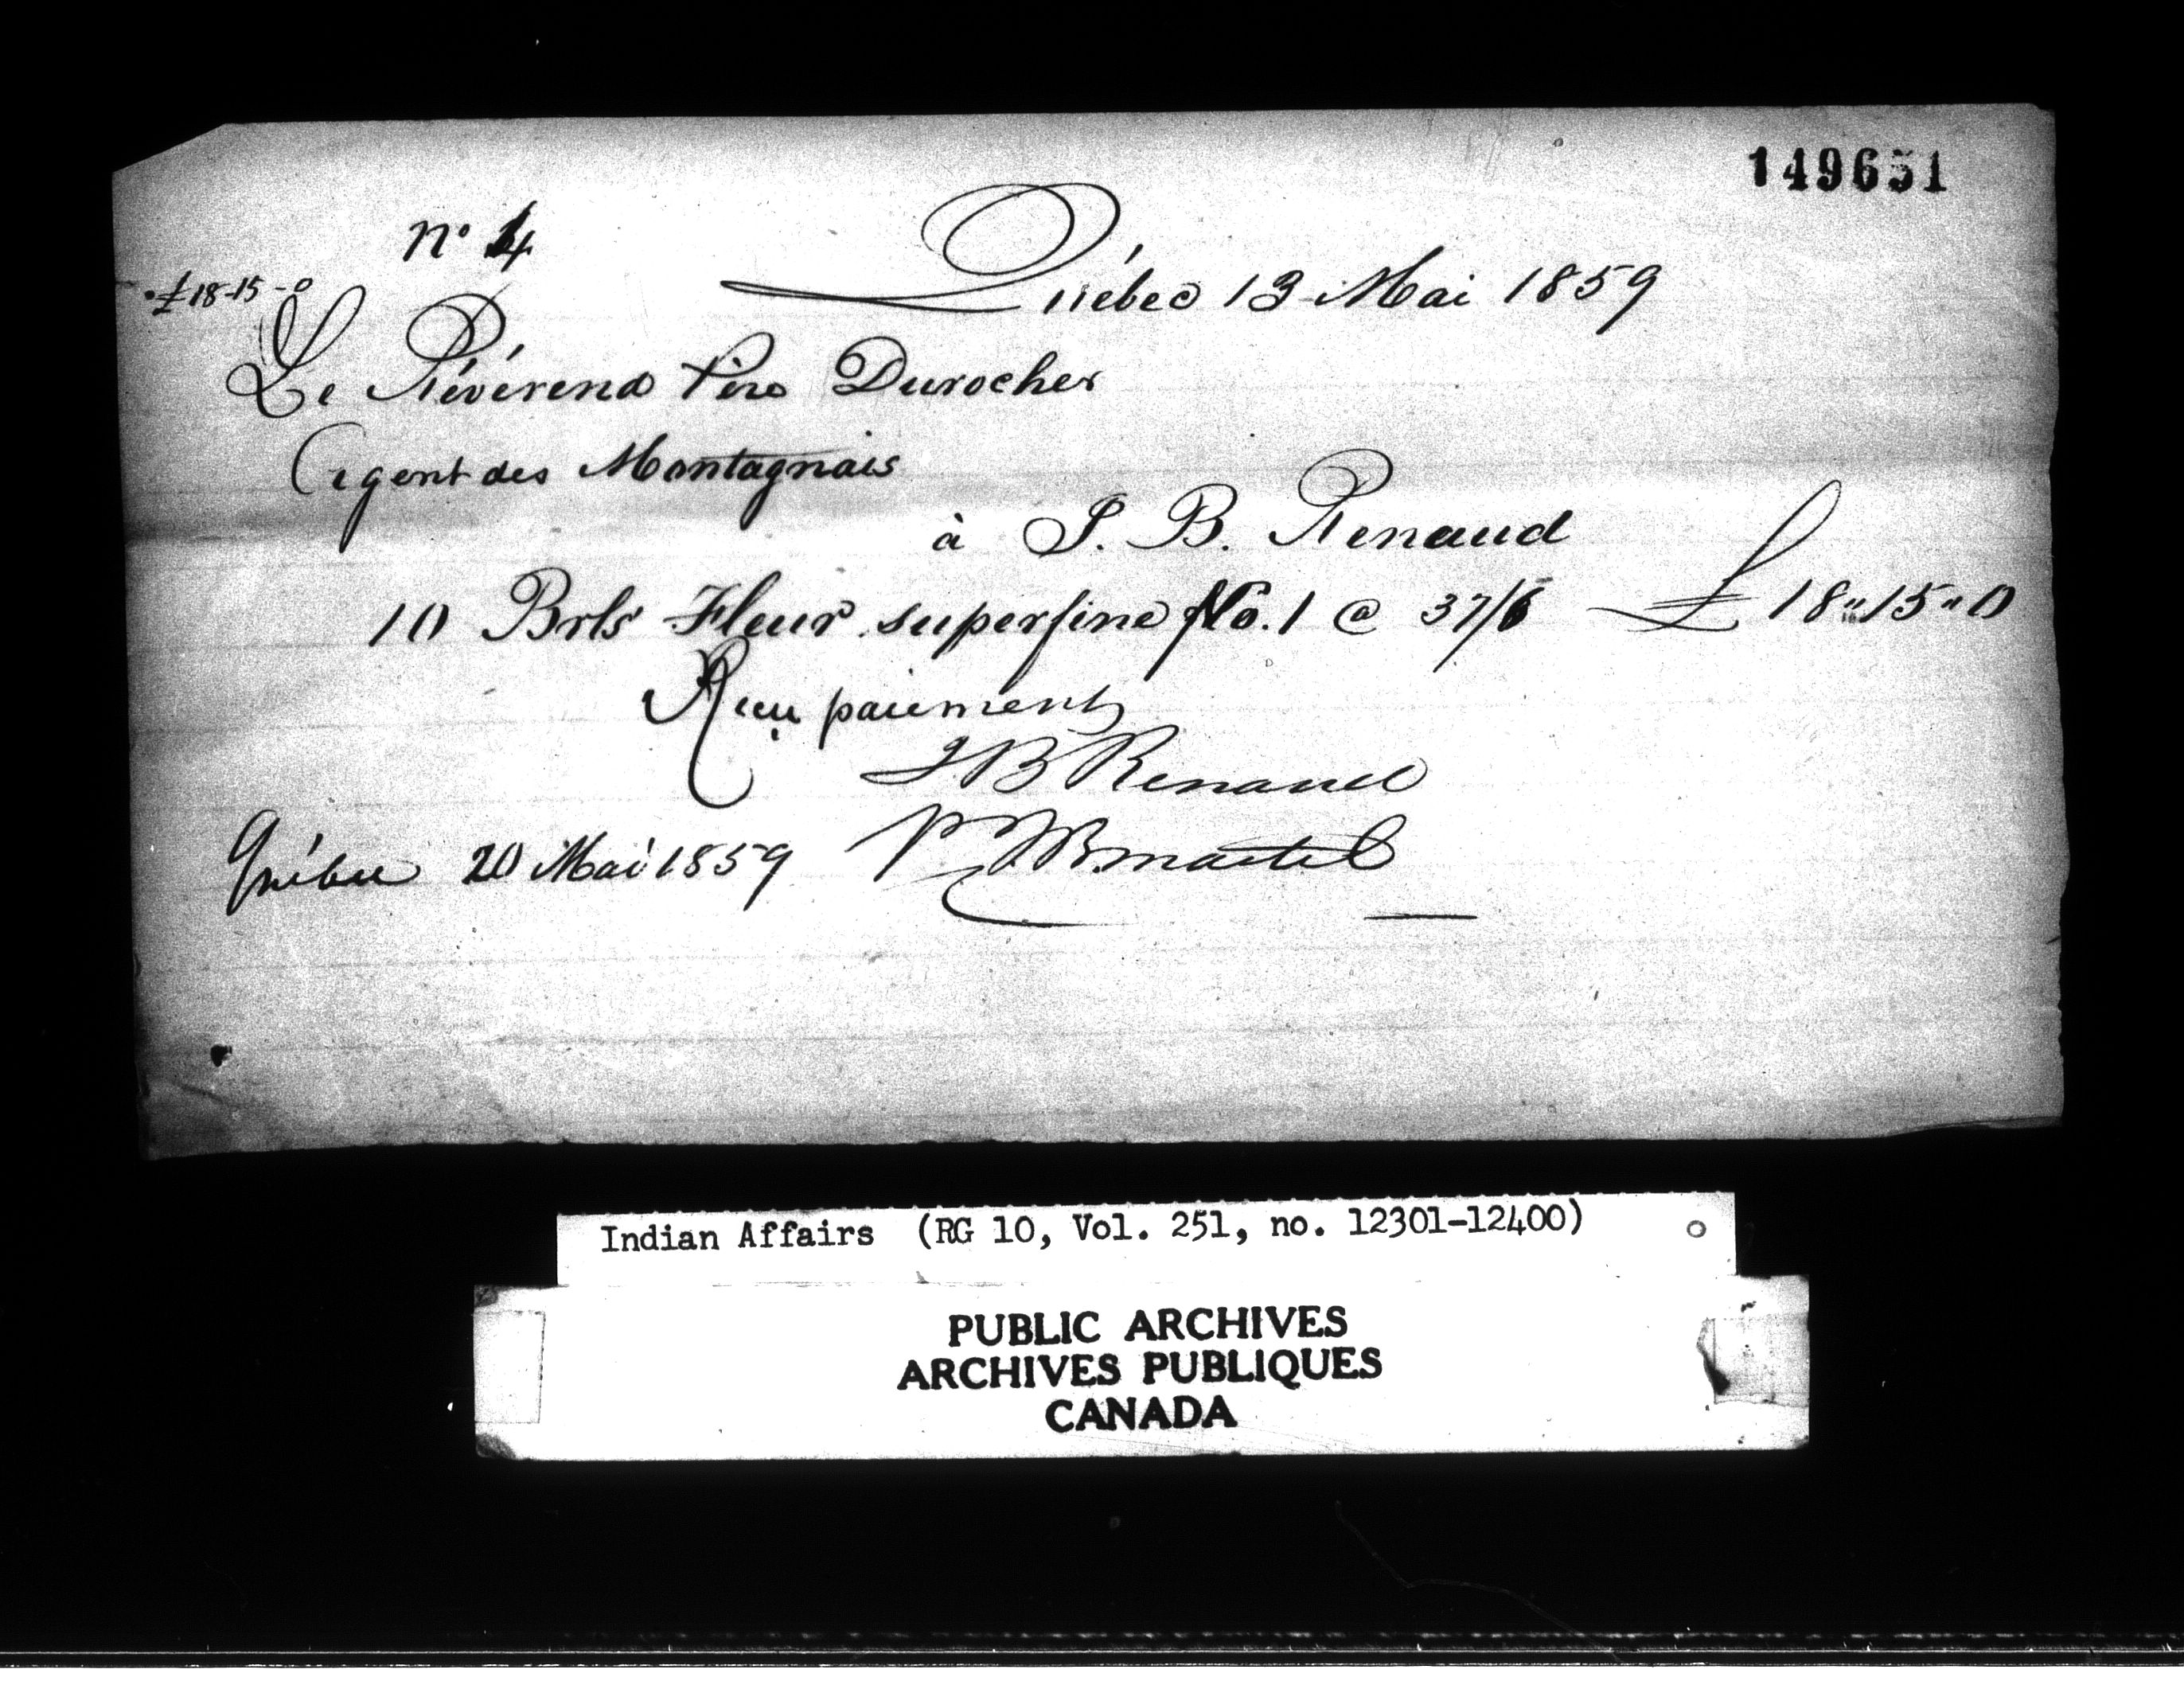 149651
No 4
£18-15-0
Québec 13 Mai 1859
Le Révérend Père Durocher
Agent des Montagnais
à J. B. Renaud
10 Brls Fleur superfine No. 1 @ 37/6 £18"15"0
Reçu paiement
J B Renaud
Québec 20 Mai 1859 P W martel
Indian Affairs (RG 10, Vol. 251, no. 12301-12400)
PUBLIC ARCHIVES
ARCHIVES PUBLIQUES
CANADA